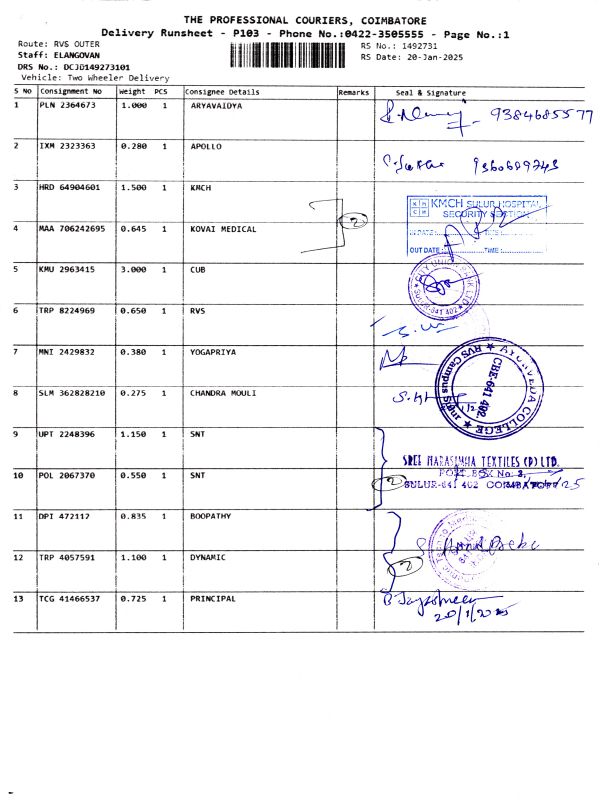 THE PROFESSIONAL COURIERS, COIMBATORE
Delivery Runsheet - P103 - Phone No.:0422-3505555 - Page No.:1
Route: RVS OUTER
RS No.: 1492731
Staff: ELANGOVAN
RS Date: 20-Jan-2025
DRS No.: DCJD149273101
Vehicle: Two Wheeler Delivery
S No Consignment No Weight PCS Consignee Details Remarks Seal & Signature
1 PLN 2364673 1.000 1 ARYAVAIDYA 9384685577
2 IXM 2323363 0.280 1 APOLLO 9360689743
3 HRD 64904601 1.500 1 KMCH
KMCH SULUR HOSPITAL
SECURITY SECTION
2
4 MAA 706242695 0.645 1 KOVAI MEDICAL
IN DATE: TIME:
OUT DATE: TIME:
5 KMU 2963415 3.000 1 CUB
CITY UNION BANK LTD
SULUR-641 402
6 TRP 8224969 0.650 1 RVS
7 MNI 2429832 0.380 1 YOGAPRIYA
AYURVEDA COLLEGE
RVS Campus Sulur
CBE-641 402.
8 SLM 362828210 0.275 1 CHANDRA MOULI
9 UPT 2248396 1.150 1 SNT
SREE NARASIMHA TEXTILES (P) LTD.
POST BOX No. 2,
10 POL 2067370 0.550 1 SNT
2
SULUR-641 402 COIMBATORE
11 DPI 472112 0.835 1 BOOPATHY
12 TRP 4057591 1.100 1 DYNAMIC
2
13 TCG 41466537 0.725 1 PRINCIPAL
20/1/2025